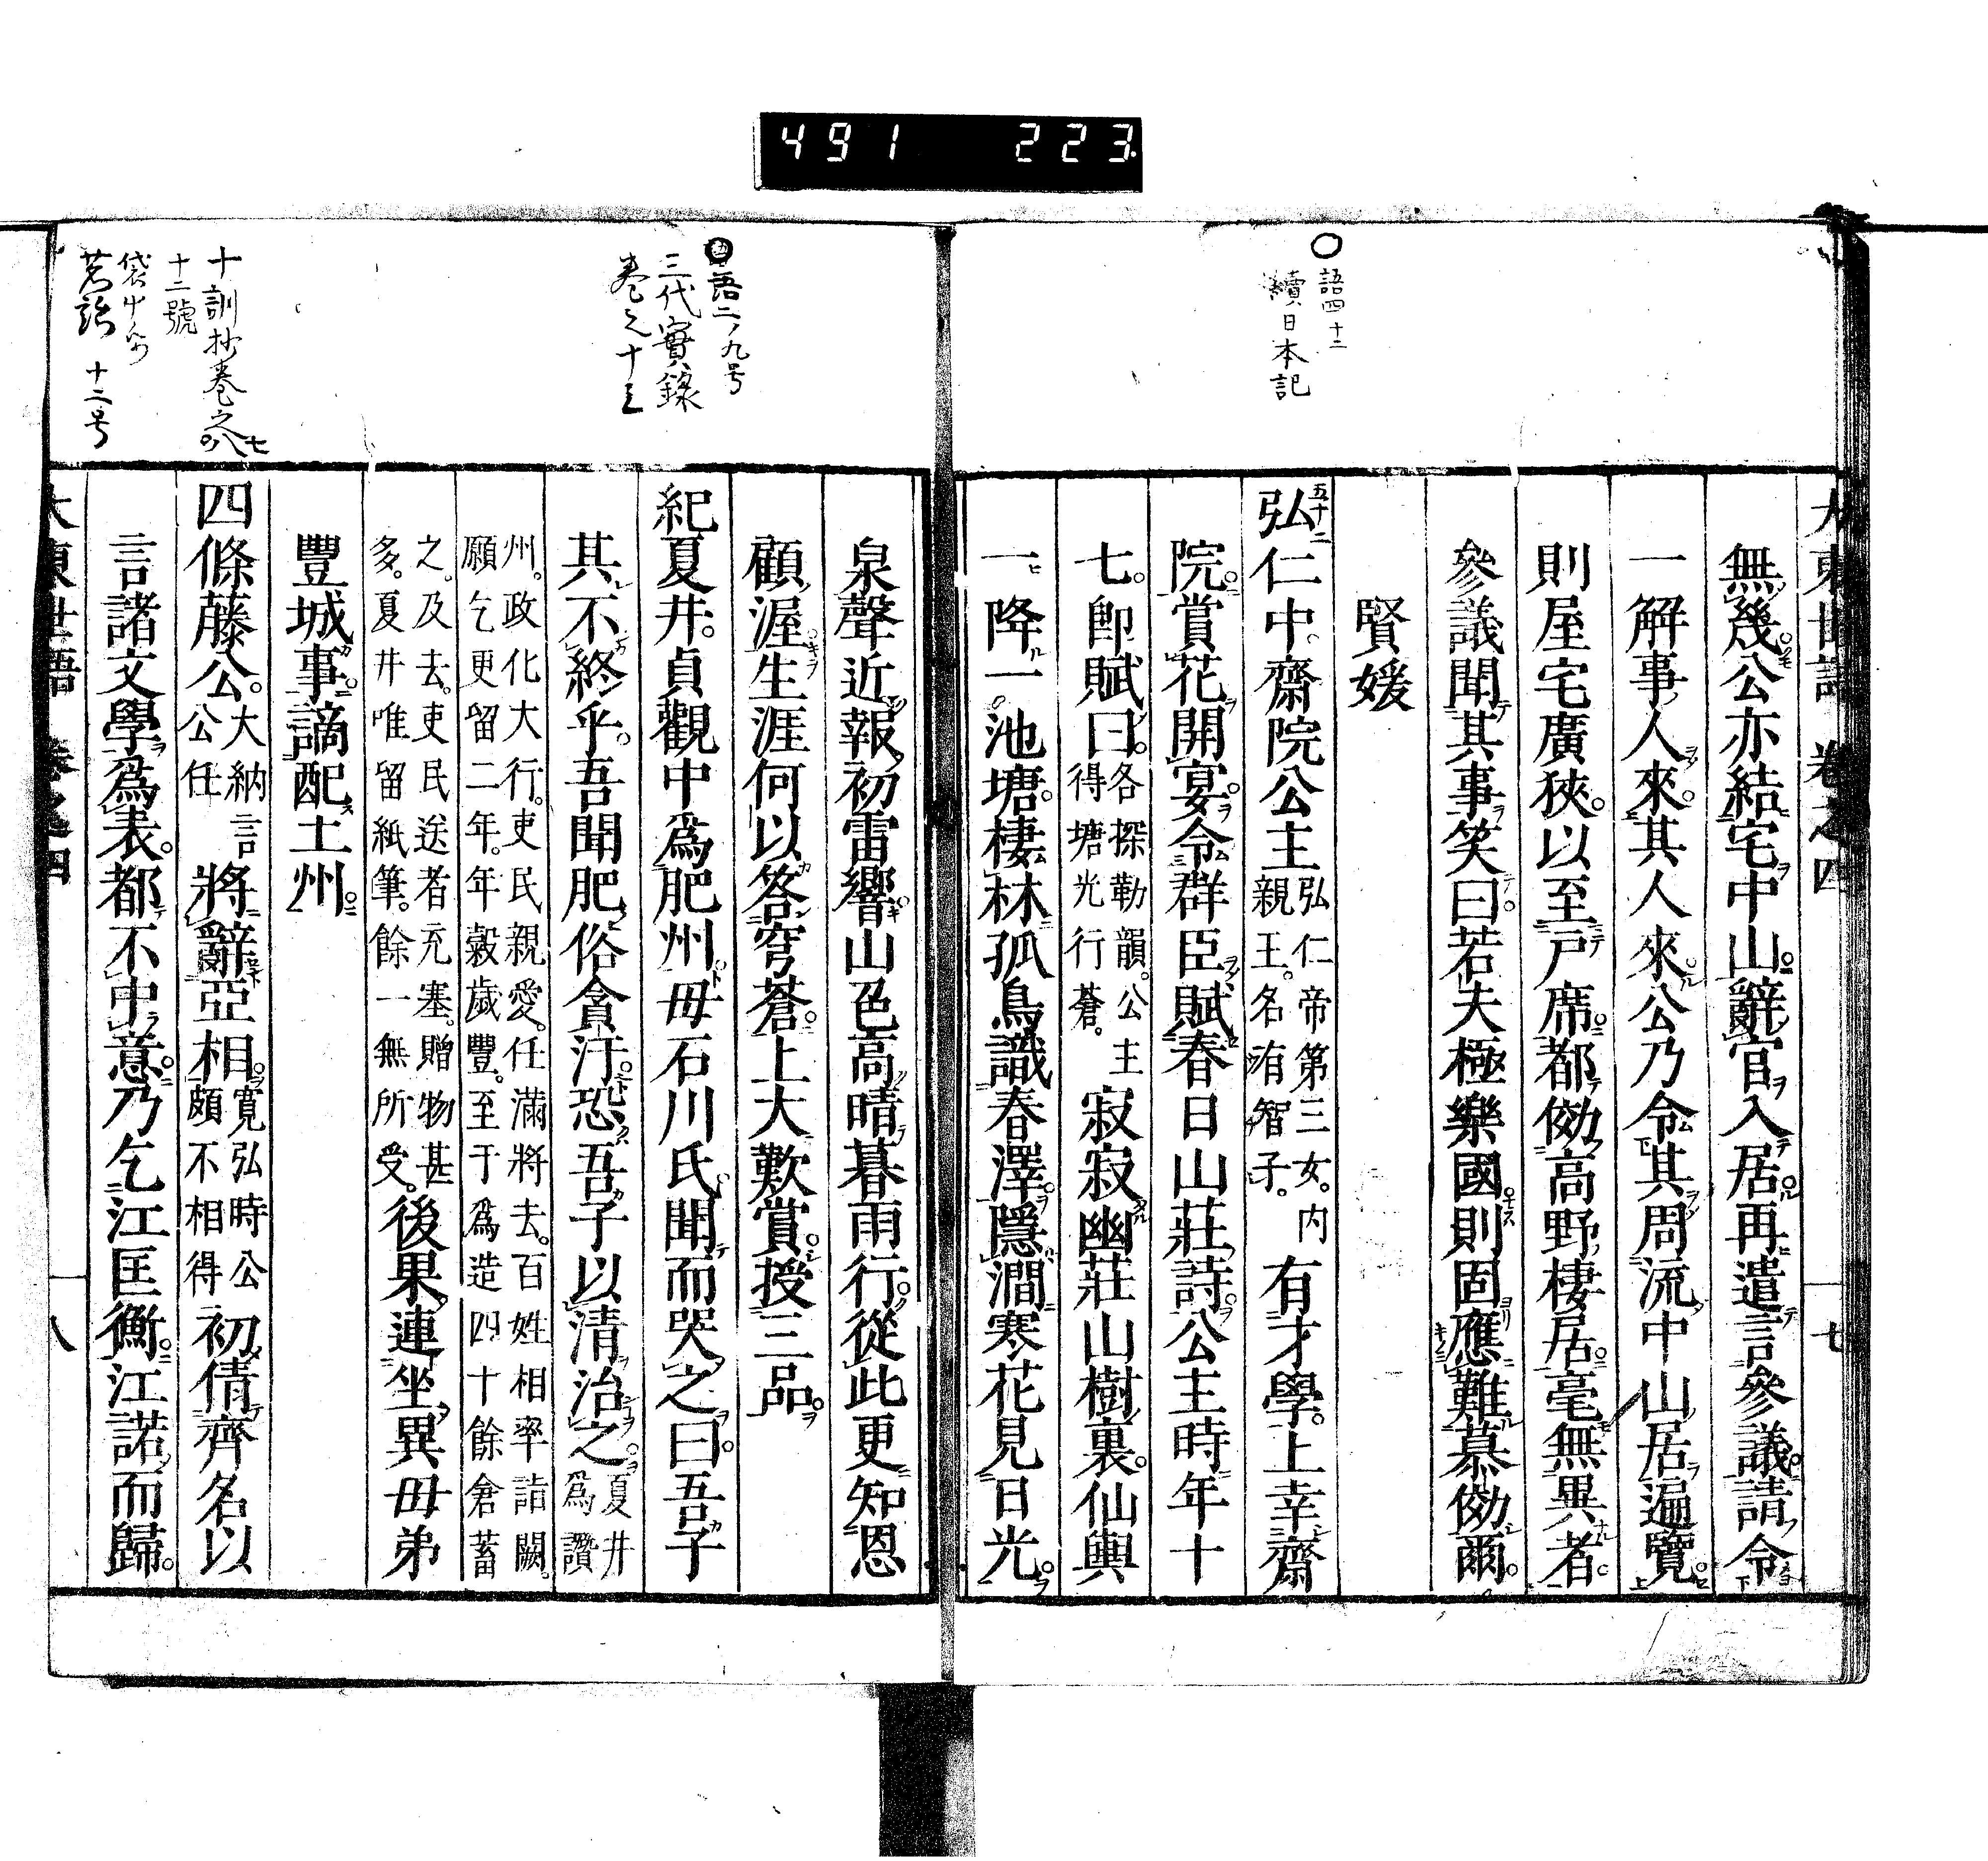 491 223
語四十二
續日本記
大東世語 卷之四 十七
無幾公亦結宅中山辭官入居再遣言參議請令
一解事人來其人來公乃令其周流中山居遍覽
則屋宅廣狹以至戸席都傚高野棲居毫無異者
參議聞其事笑曰若夫極樂國則固應難慕傚爾
賢媛
五十二
弘仁中齋院公主弘仁帝第三女内親王名有智子有才學上幸齋
院賞花開宴令群臣賦春日山莊詩公主時年十
七即賦曰各探勒韻公主得塘光行蒼寂寂幽莊山樹裏仙輿
一降一池塘棲林孤鳥識春澤隱澗寒花見日光
語二ノ九号
三代實錄
卷之十三
泉聲近報初雷響山色高晴暮雨行從此更知恩
顧渥生涯何以答穹蒼上大歎賞授三品
紀夏井貞觀中爲肥州母石川氏聞而哭之曰吾子
其不終乎吾聞肥俗貪汙恐吾子以清治之夏井爲讚
州政化大行吏民親愛任滿將去百姓相率詣闕
願乞更留二年年穀歲豐至于爲造四十餘倉蓄
之及去吏民送者充塞贈物甚
多夏井唯留紙筆餘一無所受後果連坐異母弟
豐城事謫配土州
十訓抄卷之八
七
十二號
袋中
十二号
四條藤公大納言公任將辭亞相寬弘時公頗不相得初倩齊名以
言諸文學爲表都不中意乃乞江匡衡江諾而歸
大東世語 卷之四 十八